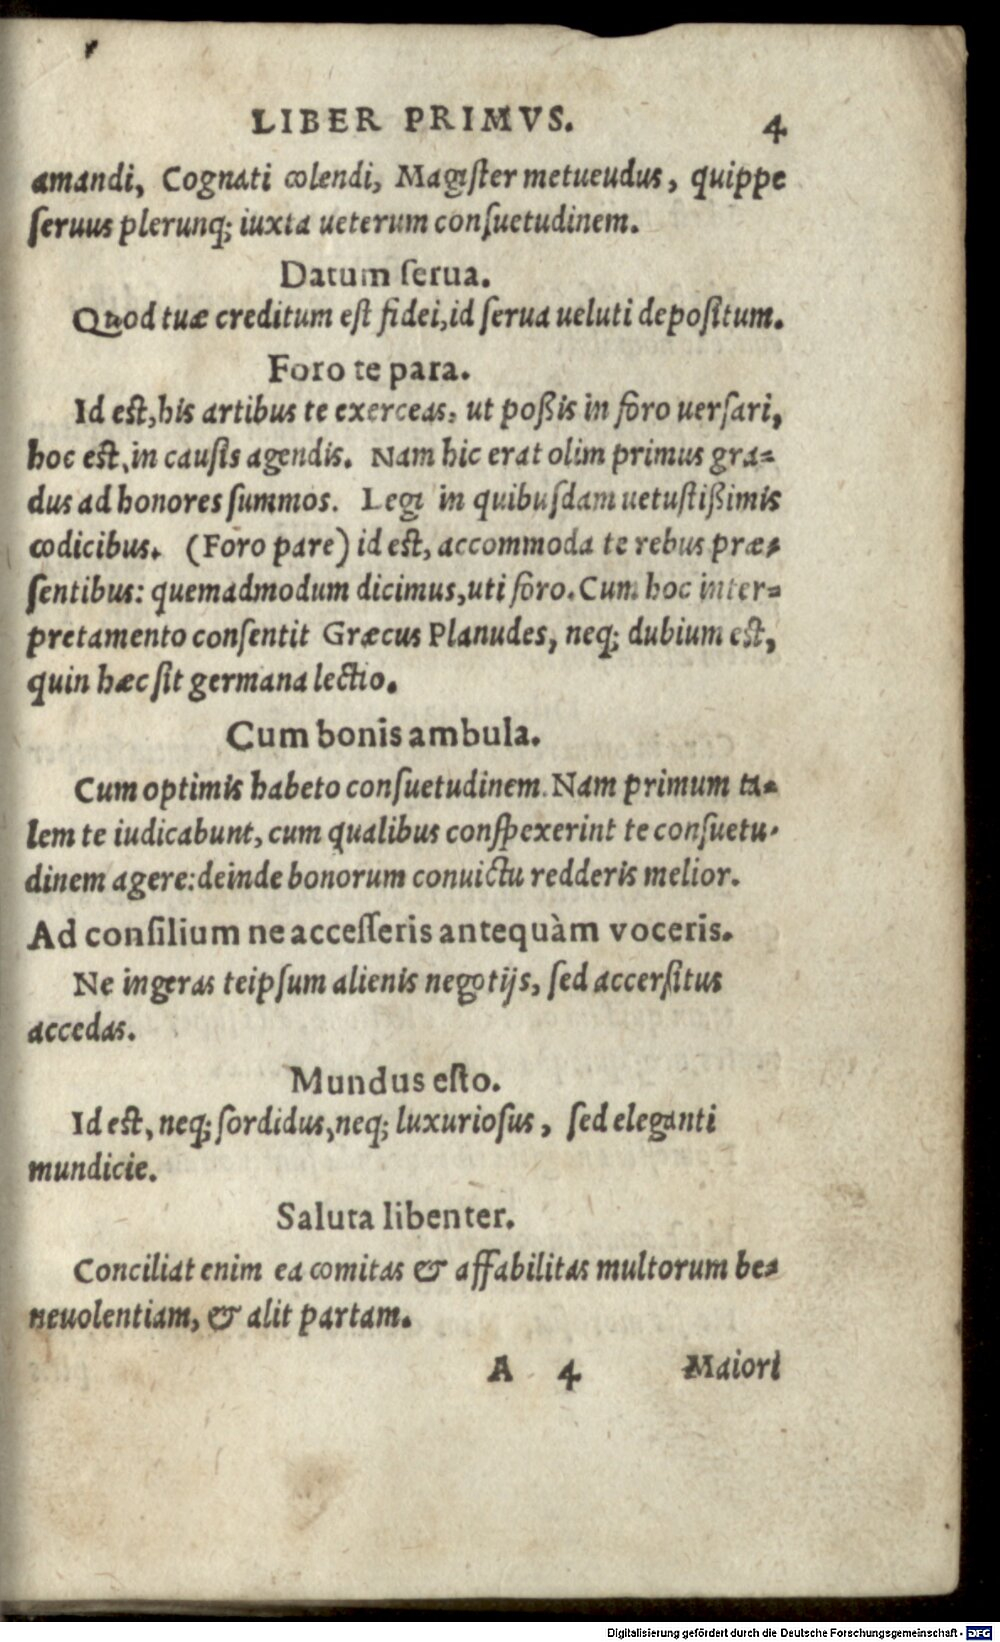 LIBER PRIMVS. 4
amandi, Cognati colendi, Magister metueudus, quippe
ſeruus plerunq; iuxta ueterum conſuetudinem.
Datum ſerua.
Quod tuæ creditum est fidei, id ſerua ueluti depoſitum.
Foro te para.
Id est, his artibus te exerceas, ut poßis in foro uerſari,
hoc est, in cauſis agendis. Nam hic erat olim primus gra-
dus ad honores ſummos. Legi in quibuſdam uetustißimis
codicibus. (Foro pare) id est, accommoda te rebus præ-
ſentibus: quemadmodum dicimus, uti foro. Cum hoc inter-
pretamento conſentit Græcus Planudes, neq; dubium est,
quin hæc ſit germana lectio.
Cum bonis ambula.
Cum optimis habeto conſuetudinem. Nam primum ta-
lem te iudicabunt, cum qualibus conſpexerint te conſuetu-
dinem agere: deinde bonorum conuictu redderis melior.
Ad conſilium ne acceſſeris antequàm voceris.
Ne ingeras teipſum alienis negotijs, ſed accerſitus
accedas.
Mundus eſto.
Id est, neq; ſordidus, neq; luxurioſus, ſed eleganti
mundicie.
Saluta libenter.
Conciliat enim ea comitas & affabilitas multorum be-
neuolentiam, & alit partam.
A 4 Maiori
Digitalisierung gefördert durch die Deutsche Forschungsgemeinschaft - DFG